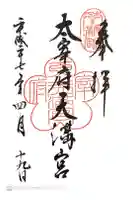 奉拝
太宰府天満宮
平成二十七年四月
十九日